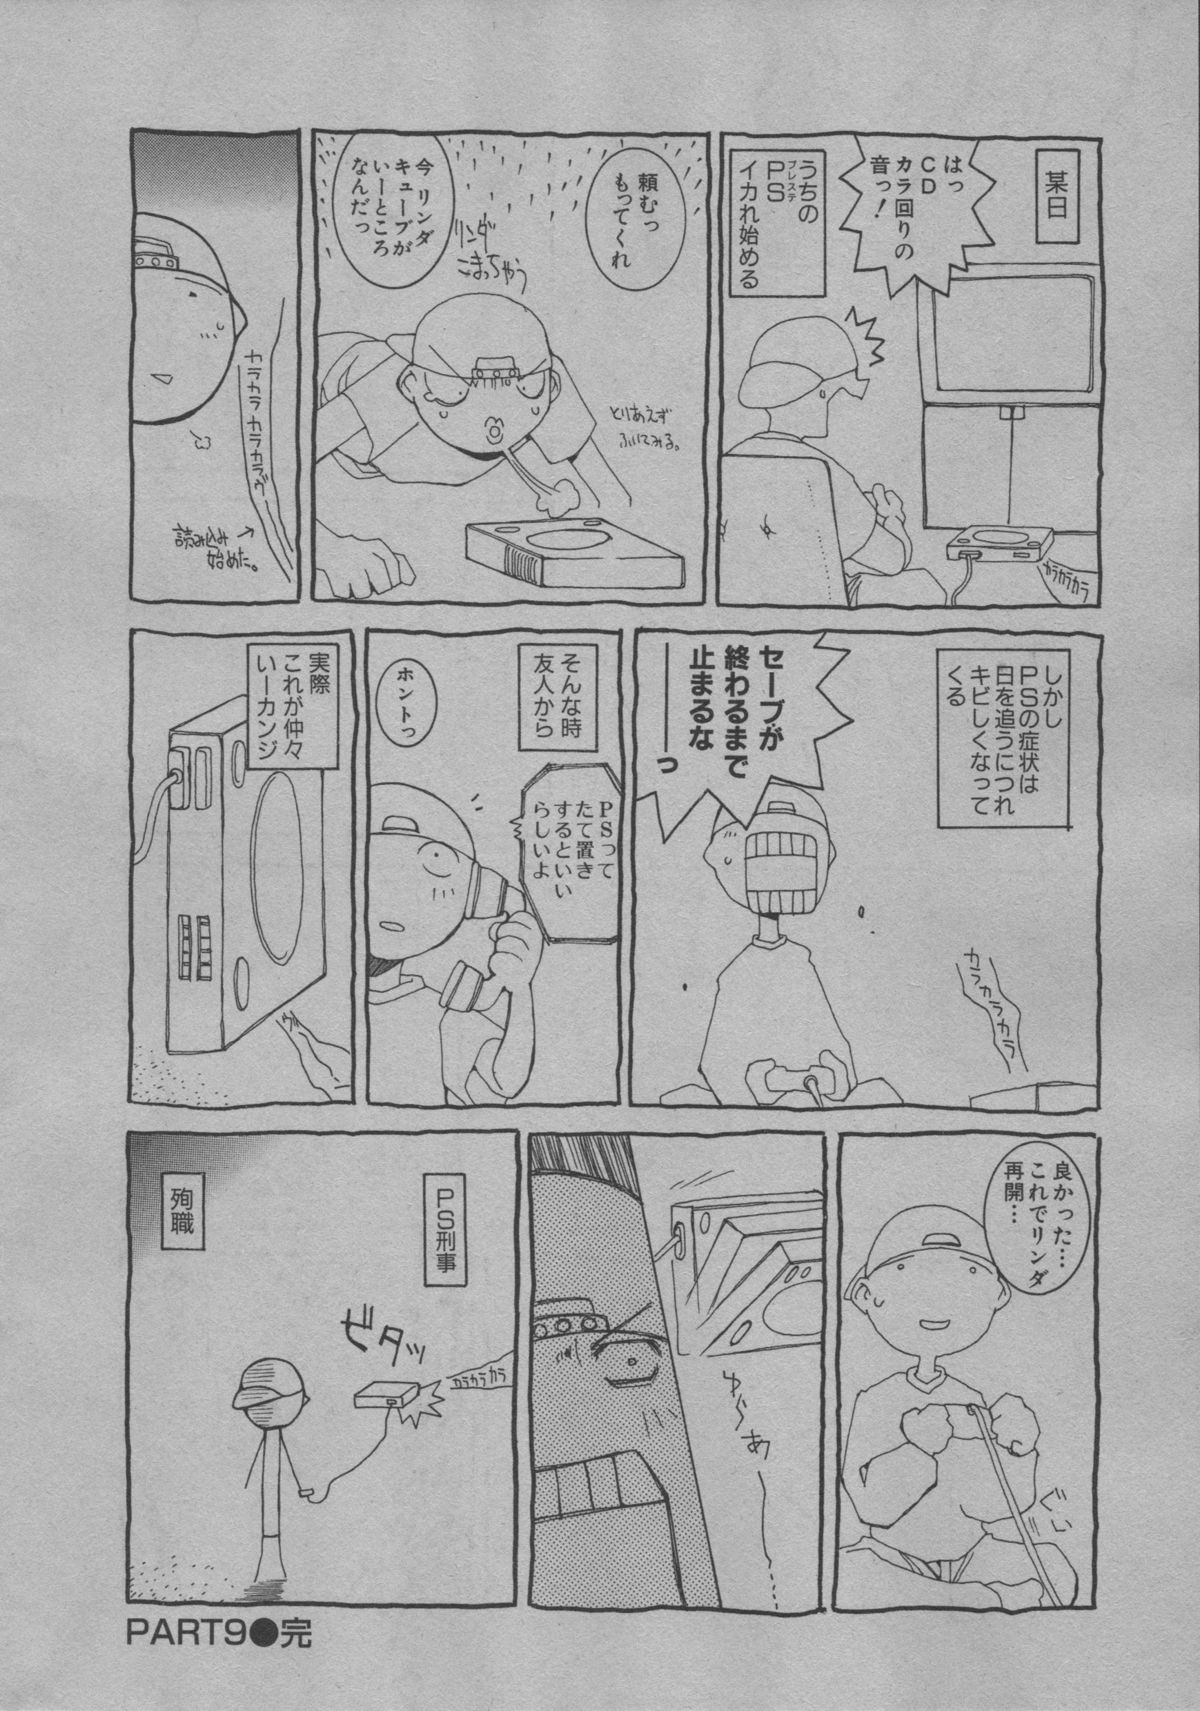 某日
はっ
CD
カラ回りの
音っ!
うちの
PS
プレステ
イカれ始める
カラカラカラ
頼むっ
もってくれ
今 リンダ
キューブが
いーところ
なんだっ
リンダ
こまっちゃう
とりあえず
ふいてみる。
カラカラカラカラカラ
読み込み
始めた。
しかし
PSの症状は
日を追うにつれ
キビしくなって
くる
セーブが
終わるまで
止まるな
───っ
カラカラカラ
そんな時
友人から
PSって
たて置き
するといい
らしいよ
ホントっ
実際
これが仲々
いーカンジ
良かった…
これでリンダ
再開…
ぐい
ゆらあ〜……
PS刑事
ビタッ
カラカラカラ
殉職
PART9●完